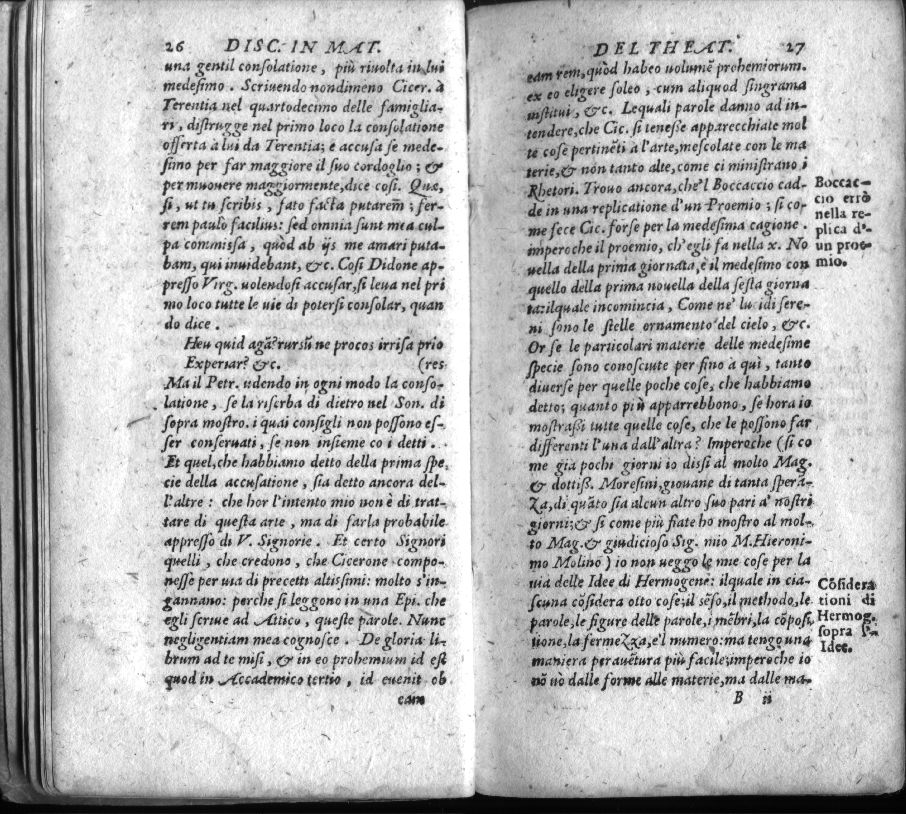 26 DISC. IN MAT.
una gentil consolatione, più riuolta in lui
medesimo. Scriuendo nondimeno Cicer. à
Terentia nel quartodecimo delle famiglia-
ri, distrugge nel primo loco la consolatione
offerta à lui da Terentia; e accusa se mede-
simo per far maggiore il suo cordoglio; &
per muouere maggiormente, dice cosi. Quæ,
si, ut tu scribis, fato facta putarem̃; fer-
rem paulò facilius: sed omnia sunt mea cul-
pa commissa, quòd ab ijs me amari puta-
bam, qui inuidebant, &c. Cosi Didone ap-
presso Virg. uolendosi accusar, si leua nel pri
mo loco tutte le uie di potersi consolar, quan
do dice.
Heu quid agã? rursũ ne procos irrisa prio
Experiar? &c. (res
Ma il Petr. udendo in ogni modo la conso-
latione, se la riserba di dietro nel Son. di
sopra mostro. i quai consigli non possono es-
ser conseruati, se non insieme co i detti.
Et quel, che habbiamo detto della prima spe-
cie della accusatione, sia detto ancora del-
l'altre: che hor l'intento mio non è di trat-
tare di questa arte, ma di farla probabile
appresso di V. Signorie. Et certo Signori
quelli, che credono, che Cicerone compo-
nesse per uia di precetti altissimi: molto s'in-
gannano: perche si leggono in una Epi. che
egli scriue ad Attico, queste parole. Nunc
negligentiam mea cognosce. De gloria li-
brum ad te misi, & in eo prohemium id est
quod in Accademico tertio, id euenit ob
eam
DEL THEAT. 27
eam rem, quòd habeo uolumẽ prohemiorum.
ex eo eligere soleo, cum aliquod singrama
institui, &c. Lequali parole danno ad in-
tendere, che Cic. si tenesse apparecchiate mol
te cose pertinẽti à l'arte, mescolate con le ma
terie, & non tanto alte, come ci ministrano i
Rhetori. Trouo ancora, che'l Boccaccio cad-
de in una replicatione d'un Proemio; si co-
me fece Cic. forse per la medesima cagione.
imperoche il proemio, ch'egli fa nella x. No
uella della prima giornata, è il medesimo con
quello della prima nouella della sesta giorna
ta: ilquale incomincia, Come ne' lucidi sere-
ni sono le stelle ornamento del cielo, &c.
Or se le particolari materie delle medesime
specie sono conosciute per fino a quì, tanto
diuerse per quelle poche cose, che habbiamo
detto; quanto più apparrebbono, se hora io
mostrassi tutte quelle cose, che le possono far
differenti l'una dall'altra? Imperoche (si co
me gia pochi giorni io dissi al molto Mag.
& dottiss. Moresini, giouane di tanta sperã-
za, di quãto sia alcun altro suo pari a' nostri
giorni; & si come più fiate ho mostro al mol-
to Mag. & giudicioso Sig. mio M. Hieroni-
mo Molino) io non ueggo le mie cose per la
uia delle Idee di Hermogene: ilquale in cia-
scuna cõsidera otto cose; il sẽso, il methodo, le
parole, le figure delle parole, i mẽbri, la cõposi
tione, la fermezza, e'l numero: ma tengo una
maniera perauẽtura più facile; imperoche io
nõ uò dalle forme alle materie, ma dalle ma-
B ij
Boccac-
cio errò
nella re-
plica d'-
un proe-
mio.
Cõsidera
tioni di
Hermog.
sopra l'-
Idee.